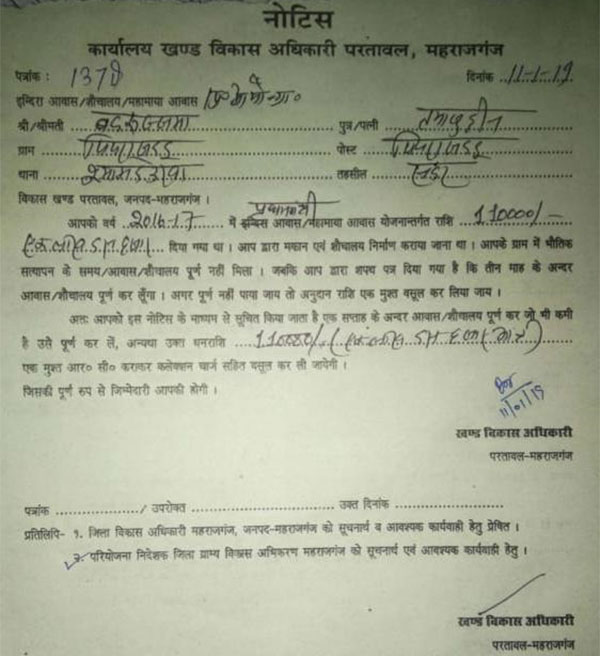 नोटिस
कार्यालय खण्ड विकास अधिकारी परतावल, महराजगंज
पत्रांक : 1378 दिनांक 11-1-19
इन्दिरा आवास/शौचालय/महामाया आवास
श्री/श्रीमती पुत्र/पत्नी
ग्राम पिपरा खडड पोस्ट पिपरा खडड
थाना श्यामदेउरवा तहसील सदर
विकास खण्ड परतावल, जनपद-महराजगंज।
प्रधानमंत्री
आपको वर्ष 2016-17 में इन्दिरा आवास/महामाया आवास योजनान्तर्गत राशि 110000/-
एक लाख दस हजार दिया गया था। आप द्वारा मकान एवं शौचालय निर्माण कराया जाना था। आपके ग्राम में भौतिक
सत्यापन के समय/आवास/शौचालय पूर्ण नहीं मिला। जबकि आप द्वारा शपथ पत्र दिया गया है कि तीन माह के अन्दर
आवास/शौचालय पूर्ण कर लूँगा। अगर पूर्ण नहीं पाया जाय तो अनुदान राशि एक मुश्त वसूल कर लिया जाय।
अतः आपको इस नोटिस के माध्यम से सूचित किया जाता है एक सप्ताह के अन्दर आवास/शौचालय पूर्ण कर जो भी कमी
है उसे पूर्ण कर लें, अन्यथा उक्त धनराशि 110000/- (एक लाख दस हजार मात्र)
एक मुश्त आर० सी० कराकर कलेक्शन चार्ज सहित वसूल कर ली जायेगी।
जिसकी पूर्ण रुप से जिम्मेदारी आपकी होगी।
11/01/19
खण्ड विकास अधिकारी
परतावल-महराजगंज
पत्रांक ..................../ उपरोक्त ........................ उक्त दिनांक .........................
प्रतिलिपि- १. जिला विकास अधिकारी महराजगंज, जनपद-महराजगंज को सूचनार्थ व आवश्यक कार्यवाही हेतु प्रेषित।
२. परियोजना निदेशक जिला ग्राम्य विकास अभिकरण महराजगंज को सूचनार्थ एवं आवश्यक कार्यवाही हेतु।
खण्ड विकास अधिकारी
परतावल-महराजगंज